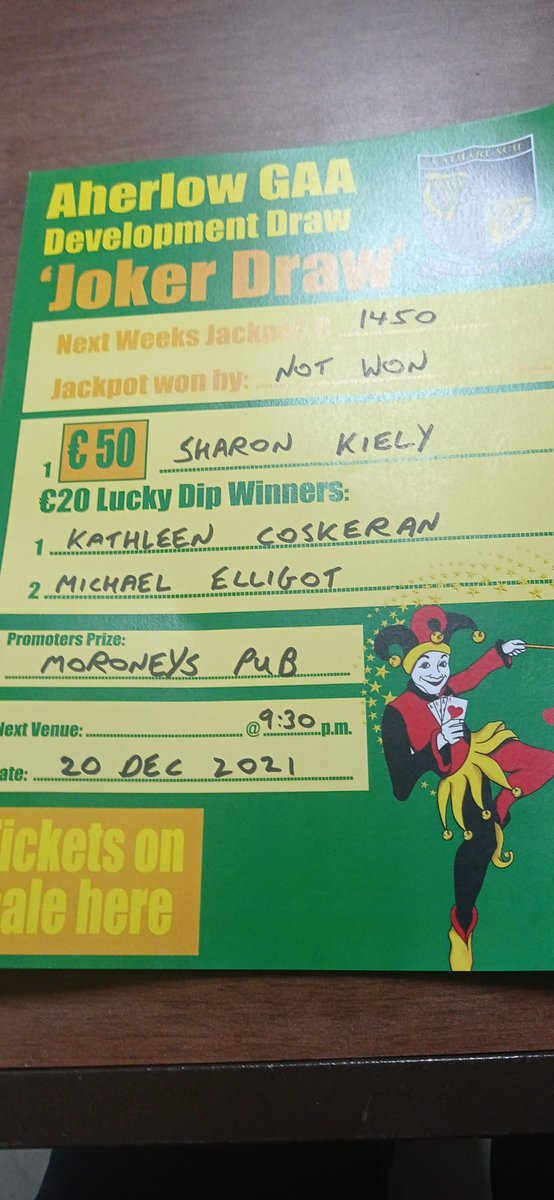 Aherlow GAA
Development Draw
'Joker Draw'
Next Weeks Jackpot € 1450
Jackpot won by: NOT WON
1 €50 SHARON KIELY
€20 Lucky Dip Winners:
1 KATHLEEN COSKERAN
2 MICHAEL ELLIGOT
Promoters Prize:
MORONEYS PUB
Next Venue: @ 9:30 p.m.
ate: 20 DEC 2021
ickets on
ale here